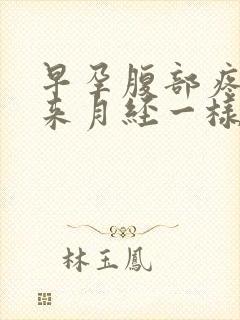 早孕腹部疼
来月经一样
林玉鳳